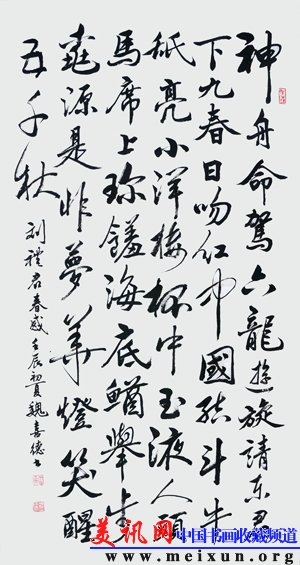 神舟命駕六龍遊旋請東君
下九春日吻红中國結斗牛
舐亮小洋樓杯中玉液人頭
馬席上珍饈海底鰌舉步
源是非夢華燈笑醒
五千秋
劉禮君春感 壬辰初夏魏喜德書
美讯网 中国书画收藏频道
www.meixun.org